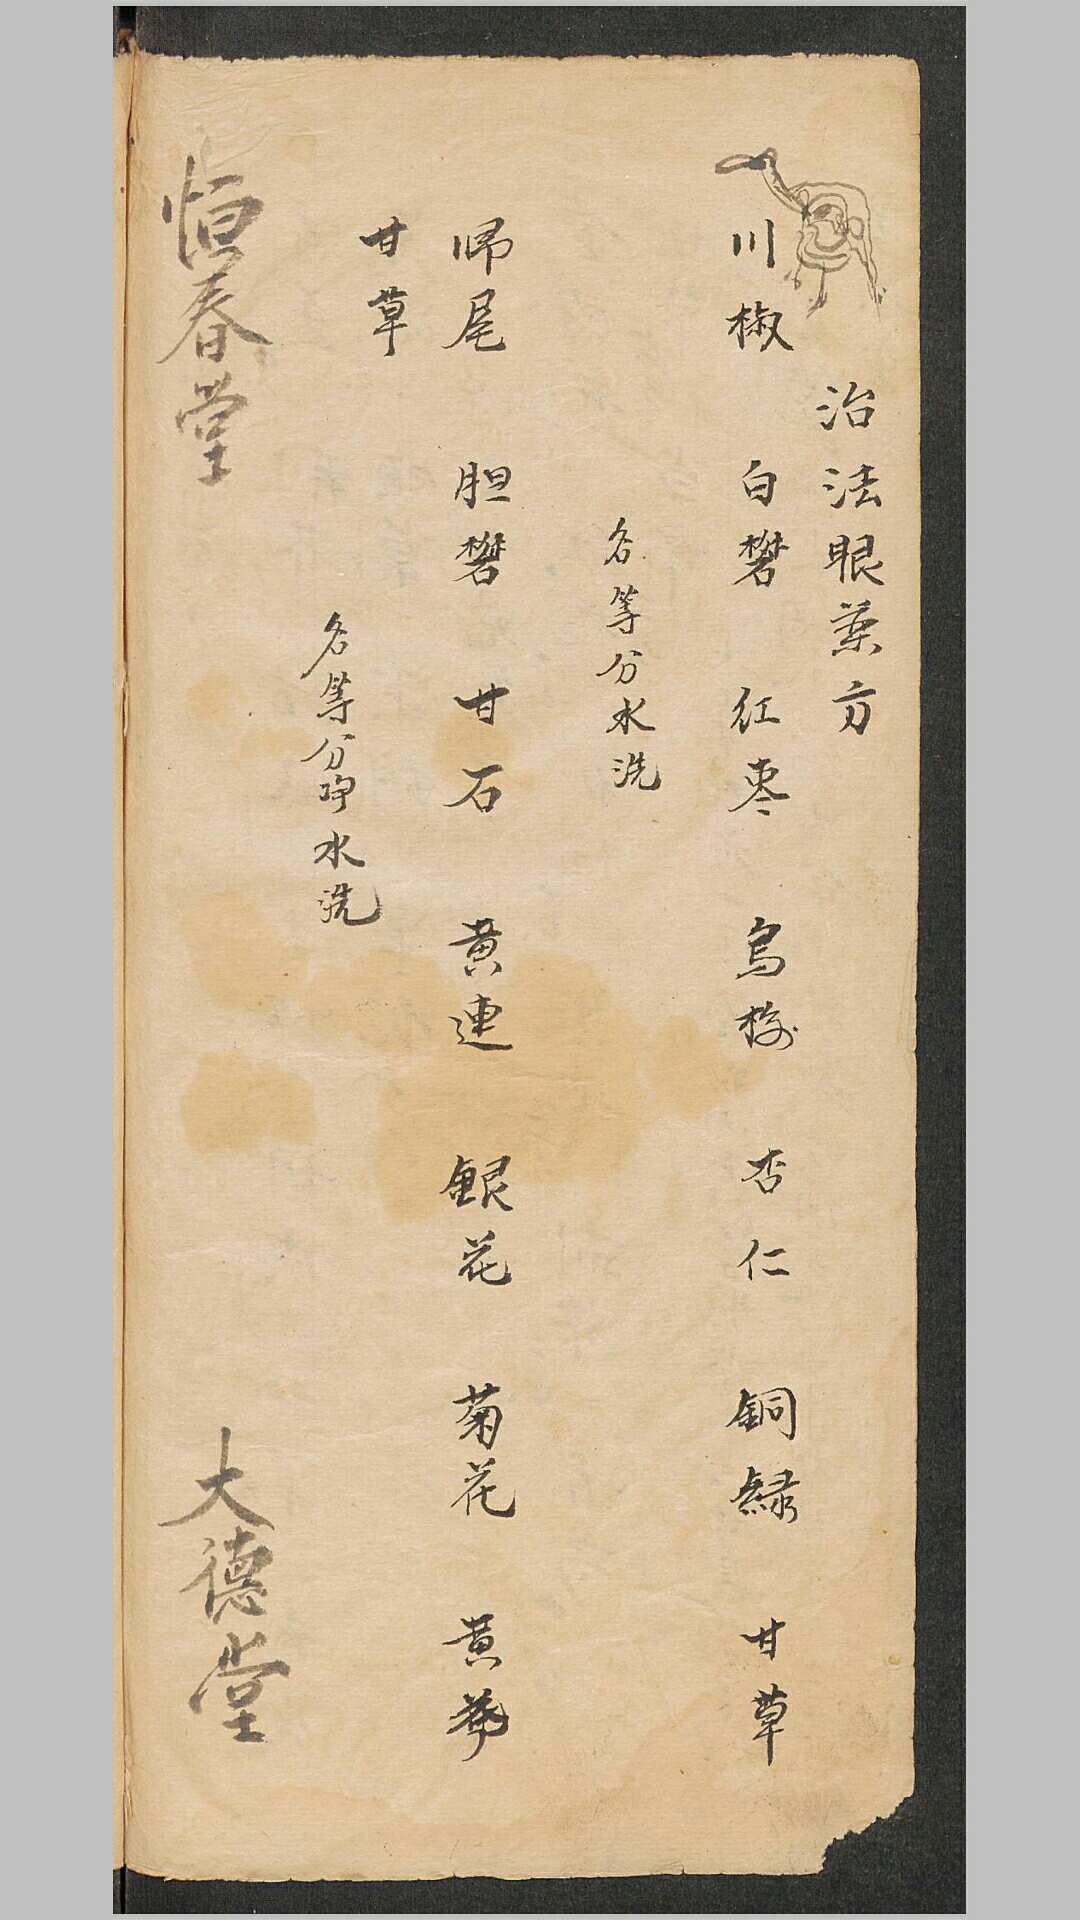 治法眼药方
川椒 白礬 红枣 烏梅 杏仁 銅緑 甘草
各等分水洗
帰尾 胆礬 甘石 黄連 銀花 菊花 黄芩
甘草
各等分净水洗
恒春堂 大德堂